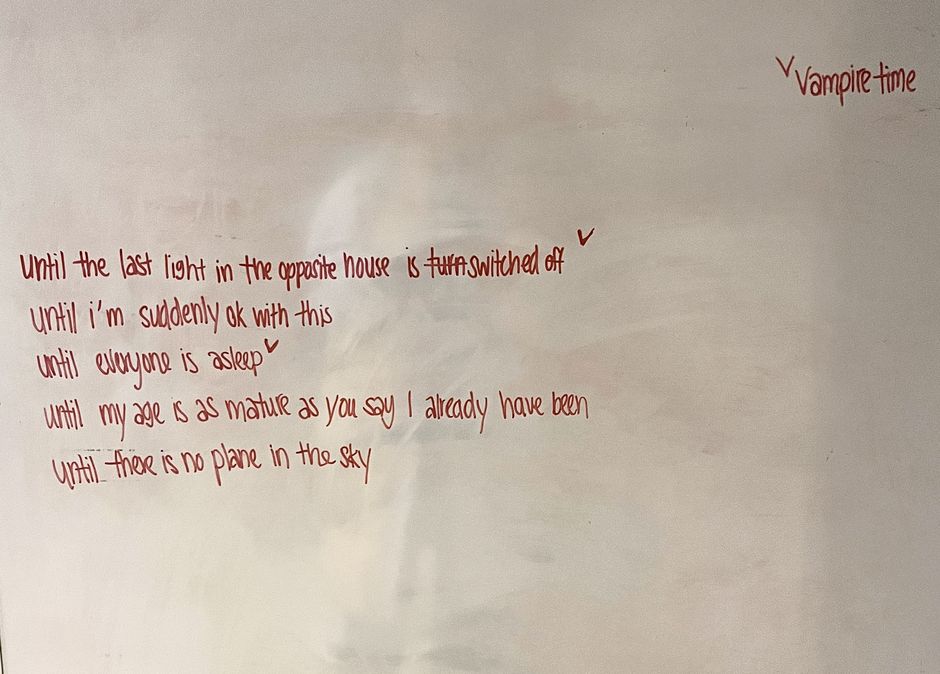 ✓ Vampire time
until the last light in the opposite house is turn switched off ✓
until i'm suddenly ok with this
until everyone is asleep ✓
until my age is as mature as you say I already have been
until there is no plane in the sky